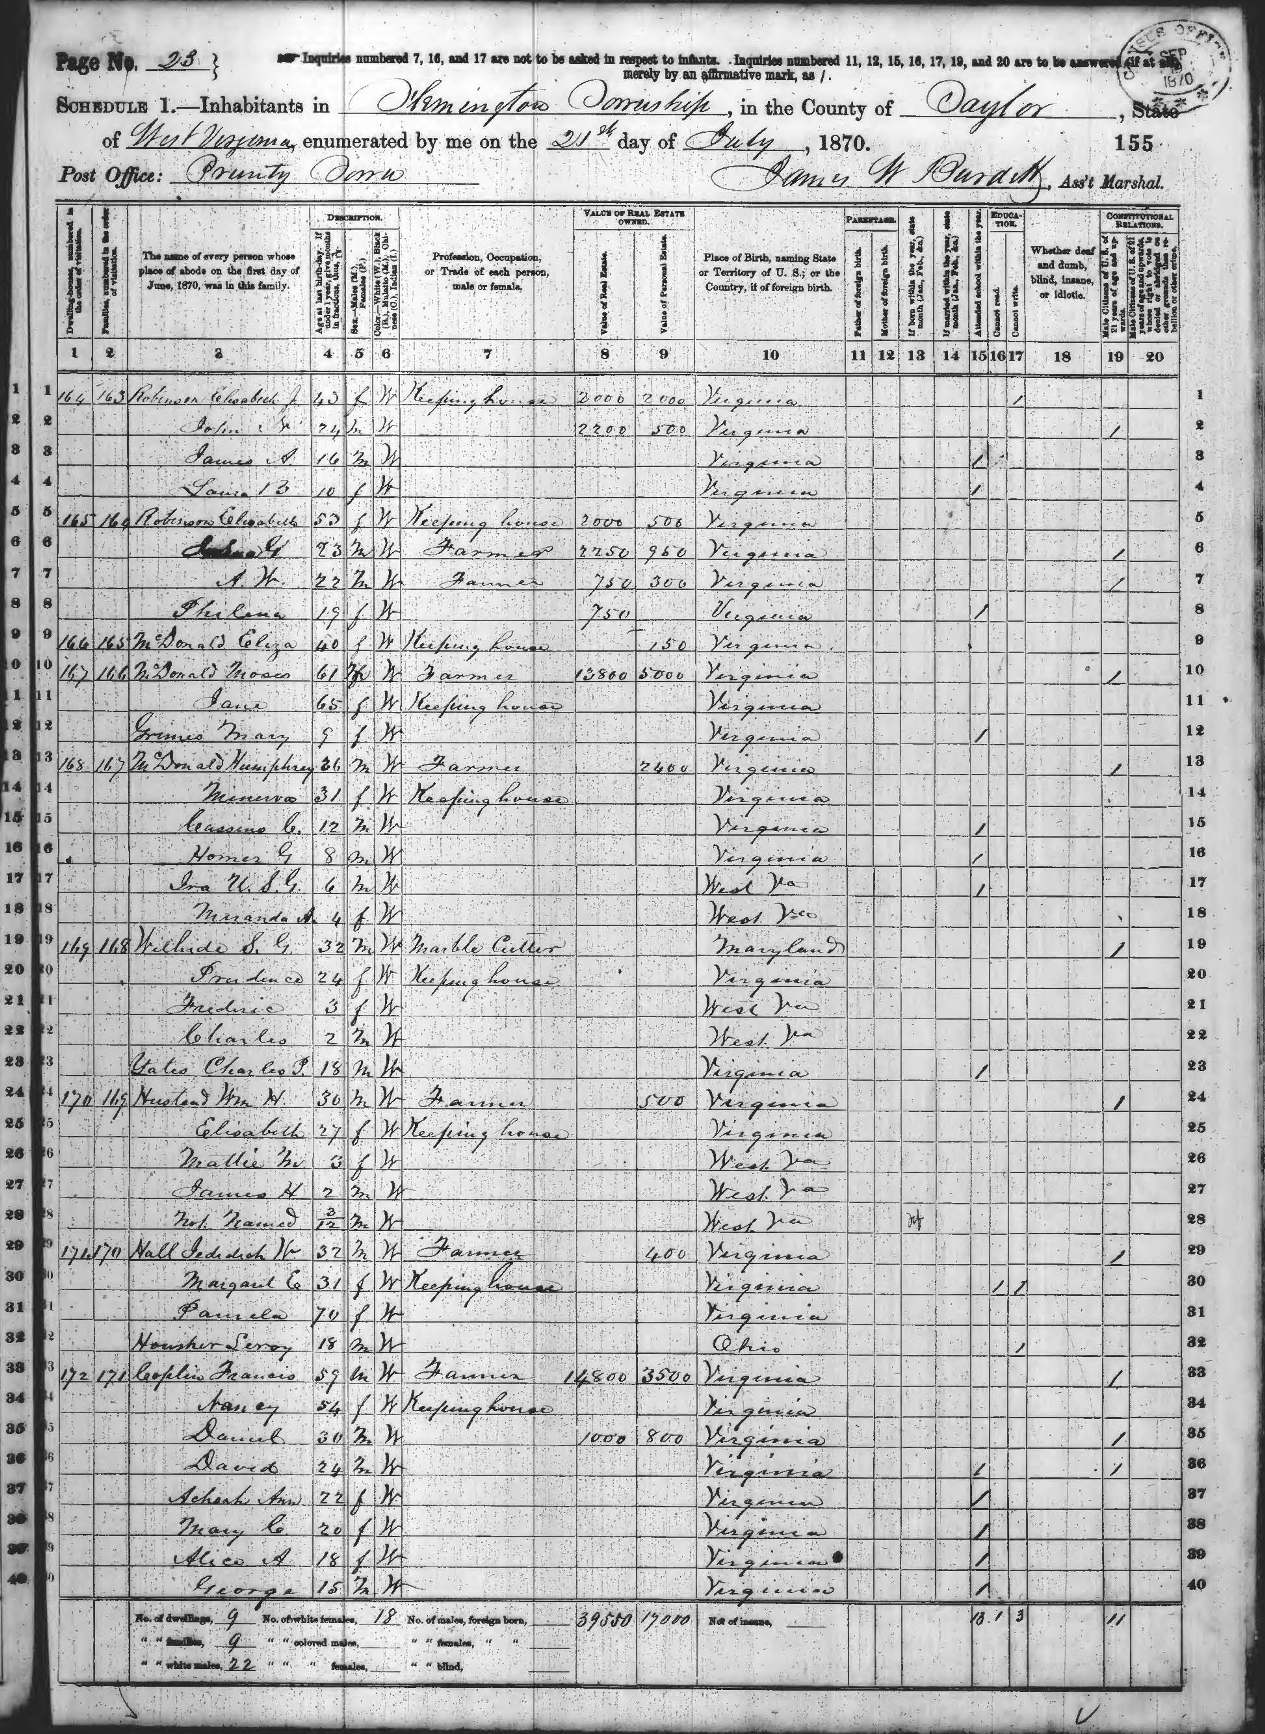 Page No. 23 } Inquiries numbered 7, 16, and 17 are not to be asked in respect to infants. Inquiries numbered 11, 12, 15, 16, 17, 19, and 20 are to be answered (if at all)
merely by an affirmative mark, as /.
CENSUS OFFICE SEP 1870
SCHEDULE 1.—Inhabitants in Flemington Township, in the County of Taylor, State
of West Virginia, enumerated by me on the 21st day of July, 1870. 155
Post Office: Prunty Town James W Burdett, Ass't Marshal.
DESCRIPTION. VALUE OF REAL ESTATE OWNED. PARENTAGE. EDUCATION. CONSTITUTIONAL RELATIONS.
Dwelling-houses, numbered in the order of visitation. Families, numbered in the order of visitation. The name of every person whose place of abode on the first day of June, 1870, was in this family. Age at last birth-day. If under 1 year, give months in fractions, thus, 3/12. Sex.—Males (M.), Females (F.). Color.—White (W.), Black (B.), Mulatto (M.), Chinese (C.), Indian (I.). Profession, Occupation, or Trade of each person, male or female. Value of Real Estate. Value of Personal Estate. Place of Birth, naming State or Territory of U. S.; or the Country, if of foreign birth. Father of foreign birth. Mother of foreign birth. If born within the year, state month (Jan., Feb., &c.) If married within the year, state month (Jan., Feb., &c.) Attended school within the year. Cannot read. Cannot write. Whether deaf and dumb, blind, insane, or idiotic. Male Citizens of U. S. of 21 years of age and upwards. Male Citizens of U. S. of 21 years of age and upwards, whose right to vote is denied or abridged on other grounds than rebellion or other crime.
1 2 3 4 5 6 7 8 9 10 11 12 13 14 15 16 17 18 19 20
1 1 164 163 Robinson Elisabeth J 43 f W Keeping house 2000 2000 Virginia / 1
2 2 John 24 m W 2200 500 Virginia / 2
3 3 James A. 16 M W Virginia / 3
4 4 Laura B 10 f W Virginia / 4
5 5 165 164 Robinson Elisabeth 53 f W Keeping house 2000 500 Virginia 5
6 6 23 M W Farmer 2250 950 Virginia / 6
7 7 A. W. 22 M W Farmer 750 300 Virginia / 7
8 8 Philena 19 f W 750 Virginia / 8
9 9 166 165 McDonald Eliza 40 f W Keeping house 150 Virginia 9
10 10 167 166 McDonald Moses 61 M W Farmer 13800 5000 Virginia / 10
11 11 Jane 65 f W Keeping house Virginia 11
12 12 Grimes Mary 9 f W Virginia / 12
13 13 168 167 McDonald Humphrey 36 M W Farmer 2400 Virginia / 13
14 14 Minerva 31 f W Keeping house Virginia 14
15 15 Cassius C. 12 M W Virginia / 15
16 16 Homer G 8 M W Virginia / 16
17 17 Ira U. S. G. 6 M W West Va / 17
18 18 Miranda A. 4 f W West Va 18
19 19 169 168 Wilhide S. G. 32 M W Marble Cutter Maryland / 19
20 20 Prudence 24 f W Keeping house Virginia 20
21 21 Frederic 3 f W West Va 21
22 22 Charles 2 M W West Va 22
23 23 Yates Charles P. 18 M W Virginia / 23
24 24 170 169 Hustead Wm H. 30 M W Farmer 500 Virginia / 24
25 25 Elisabeth 27 f W Keeping house Virginia 25
26 26 Mattie M 3 f W West Va 26
27 27 James H 2 M W West Va 27
28 28 Not Named 3/12 M W West Va 28
29 29 171 170 Hall Jedediah W 32 M W Farmer 400 Virginia / 29
30 30 Margaret E 31 f W Keeping house Virginia 1 1 30
31 31 Pamela 70 f W Virginia 31
32 32 Leroy 18 M W Ohio / 32
33 33 172 171 Coplin Francis 59 M W Farmer 14800 3500 Virginia / 33
34 34 Nancy 54 f W Keeping house Virginia 34
35 35 Daniel 30 M W 1000 800 Virginia / 35
36 36 David 24 M W Virginia / / 36
37 37 Ann 22 f W Virginia / 37
38 38 Mary C 20 f W Virginia / 38
39 39 Alice A 18 f W Virginia / 39
40 40 George 15 M W Virginia / 40
No. of dwellings, 9 No. of white females, 18 No. of males, foreign born, 39550 17000 No. of insane, 13 1 3 11
" " families, 9 " " colored males, " " females, " "
" " white males, 22 " " " females, " " blind,